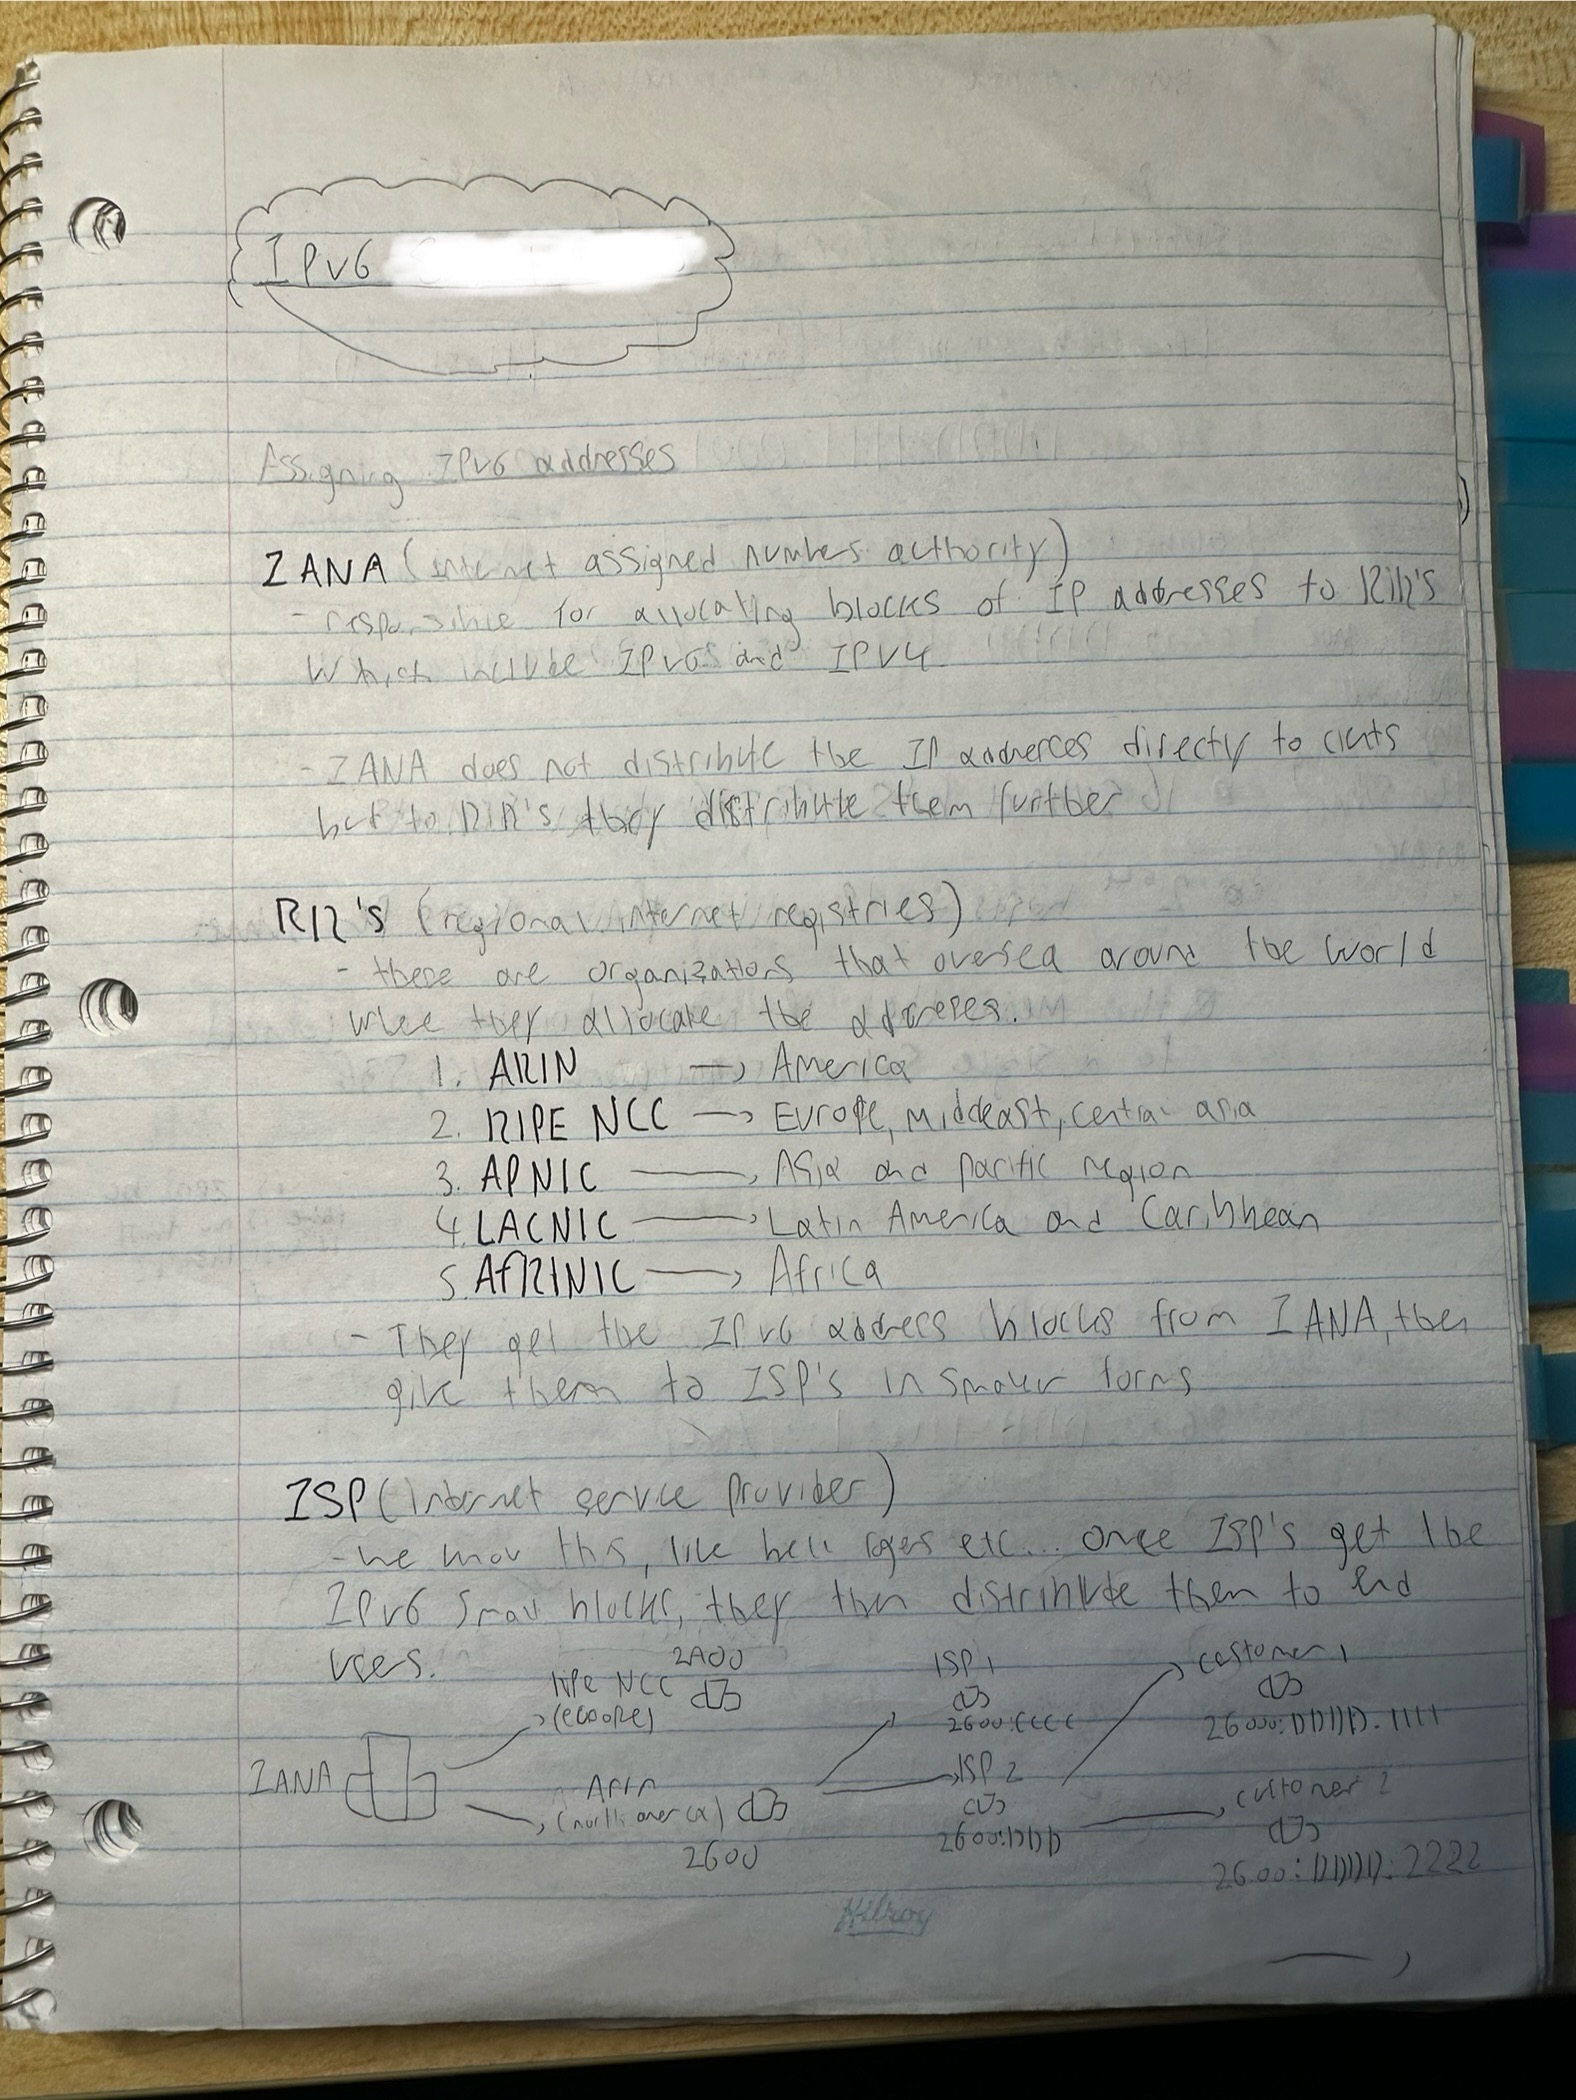 IPv6
Assigning IPv6 addresses
IANA (internet assigned numbers authority)
- responsible for allocating blocks of IP addresses to RIR's
Which include IPv6 and IPV4
- IANA does not distribute the IP addresses directly to
but to RIR's they distribute them further
RIR's (regional internet registries)
- these are organizations that oversea around the world
the allocate the
1. ARIN → America
2. RIPE NCC → Europe, Middeast, Central asia
3. APNIC → Asia and pacific region
4. LACNIC → Latin America and Caribbean
5. AfRINIC → Africa
- They get the IPv6 address blocks from IANA, then
give them to ISP's in smaller forms
ISP (internet service provider)
- we this, like bell etc... once ISP's get the
IPv6 small blocks, they then distribute them to end
2A00 ISP 1 customer 1
RIPe NCC
(europe) 2600:CCCC 2600:DDDD:1111
IANA ISP 2 customer 2
Arin
(north america) 2600:DDDD
2600 2600:DDDD:2222
Hilroy